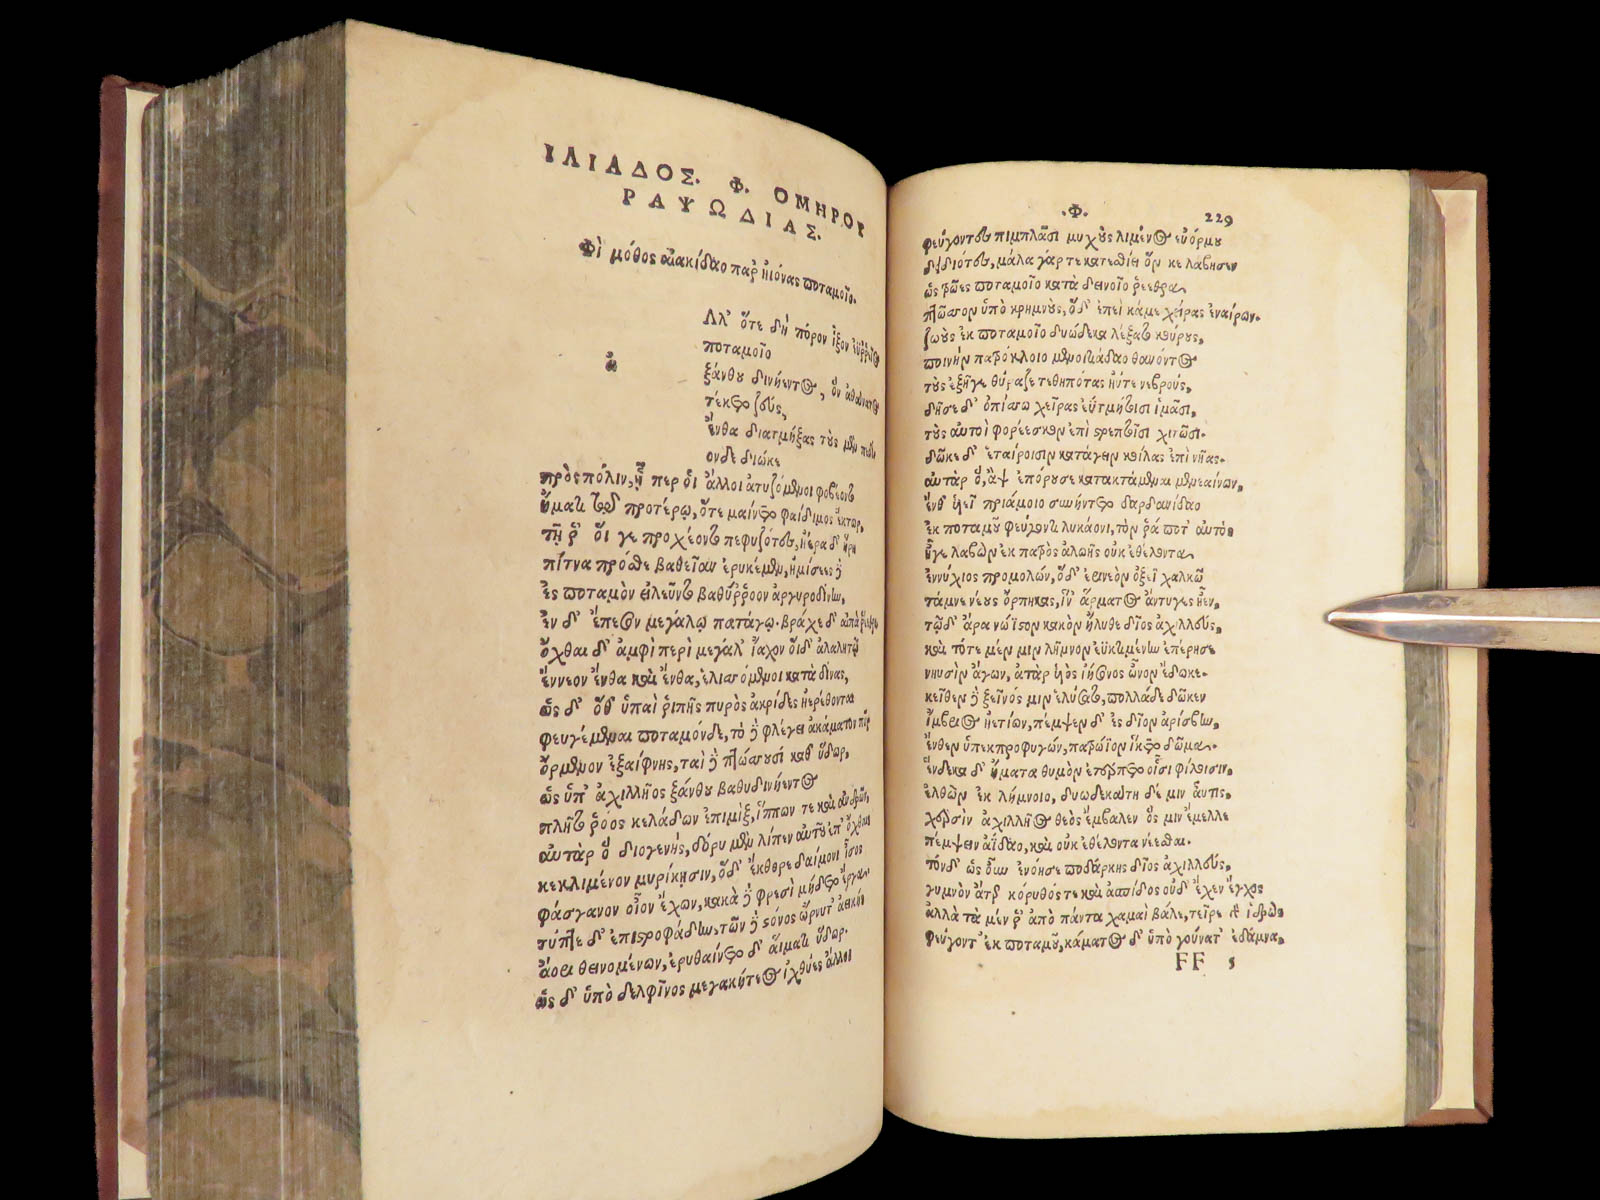 ΙΛΙΑΔΟΣ. Φ. ΟΜΗΡΟΥ
ΡΑΨΩΔΙΑΣ.
Φῖ μόθος αἰακίδαο παρ' ἠϊόνας ποταμοῖο.
ἀ
Λλ' ὅτε δὴ πόρον ἷξον ἐϋῤῥεῖος
ποταμοῖο
ξάνθου δινήεντος, ὃν ἀθάνατος
τέκετο ζεύς,
ἔνθα διατμήξας τοὺς μὲν πεδί
ονδε δίωκε
πρὸς πόλιν, ᾗ περ ὁι ἄλλοι ἀτυζόμενοι φοβέοντο
ἤματι τῷ προτέρῳ, ὅτε μαίνετο φαίδιμος ἕκτωρ,
τῇ ῥ' ὅι γε προχέοντο πεφυζότες, ἠέρα δ' ἥρη
πίτνα πρόσθε βαθεῖαν ἐρυκέμεν, ἡμίσεες δὲ
ἐς ποταμὸν εἰλεῦντο βαθύῤῥοον ἀργυροδίνην,
ἐν δ' ἔπεσον μεγάλῳ πατάγῳ. βράχε δ' αἰπὰ ῥέεθρα
ὄχθαι δ' ἀμφὶ περὶ μεγάλ' ἴαχον ὁι δ' ἀλαλητῷ
ἔννεον ἔνθα καὶ ἔνθα, ἑλισσόμενοι κατὰ δίνας,
ὡς δ' ὅθ' ὑπαὶ ῥιπῆς πυρὸς ἀκρίδες ἠερέθονται
φευγέμεναι ποταμόνδε, τὸ δὲ φλέγει ἀκάματον πῦρ
ὄρμενον ἐξαίφνης, ταὶ δὲ πτώσσουσι καθ' ὕδωρ,
ὡς ὑπ' ἀχιλλῆος ξάνθου βαθυδινήεντος
πλῆτο ῥόος κελάδων ἐπιμὶξ, ἵππων τε καὶ ἀνδρῶν,
αὐτὰρ ὁ διογενὴς, δόρυ μὲν λίπεν αὐτοῦ ἐπ' ὄχθῃ
κεκλιμένον μυρίκῃσιν, ὁ δ' ἔκθορε δαίμονι ἶσος
φάσγανον οἶον ἔχων, κακὰ δὲ φρεσὶ μήδετο ἔργα.
τύπτε δ' ἐπιστροφάδην, τῶν δὲ στόνος ὤρνυτ' ἀεικὴς
ἄορι θεινομένων, ἐρυθαίνετο δ' αἵματι ὕδωρ.
ὡς δ' ὑπὸ δελφῖνος μεγακήτεος ἰχθύες ἄλλοι
.Φ. 229
φεύγοντες πιμπλᾶσι μυχοὺς λιμένος εὐόρμου
δειδιότες, μάλα γάρ τε κατεσθίει ὅν κε λάβησιν
ὡς τρῶες ποταμοῖο κατὰ δεινοῖο ῥέεθρα
πτῶσσον ὑπὸ κρημνοὺς, ὁ δ' ἐπεὶ κάμε χεῖρας ἐναίρων.
ζωοὺς ἐκ ποταμοῖο δυώδεκα λέξατο κούρους,
ποινὴν πατρόκλοιο μενοιτιάδαο θανόντος
τοὺς ἐξῆγε θύραζε τεθηπότας ἠΰτε νεβρούς,
δῆσε δ' ὀπίσσω χεῖρας ἐϋτμήτοισι ἱμᾶσι,
τοὺς αὐτοὶ φορέεσκον ἐπὶ στρεπτοῖσι χιτῶσι.
δῶκε δ' ἑταίροισιν κατάγειν κοίλας ἐπὶ νῆας.
αὐτὰρ ὁ, ἂψ ἐπόρουσε κατακτάμεναι μενεαίνων,
ἔνθ' υἷεϊ πριάμοιο συνήντετο δαρδανίδαο
ἐκ ποταμοῦ φεύγοντι λυκάονι, τόν ῥά ποτ' αὐτὸς
ἦγε λαβὼν ἐκ πατρὸς ἀλωῆς οὐκ ἐθέλοντα
ἐννύχιος προμολών, ὁ δ' ἐρινεὸν ὀξέϊ χαλκῷ
τάμνε νέους ὄρπηκας, ἵν' ἅρματος ἄντυγες εἶεν,
τῷ δ' ἄρ' ἀνώϊστον κακὸν ἤλυθε δῖος ἀχιλλεύς,
καὶ τότε μέν μιν λῆμνον ἐϋκτιμένην ἐπέρησε
νηυσὶν ἄγων, ἀτὰρ υἱὸς ἰήσονος ὦνον ἔδωκε.
κεῖθεν δὲ ξεῖνός μιν ἐλύσατο, πολλὰ δ' ἔδωκεν
ἴμβριος ἠετίων, πέμψεν δ' ἐς δῖον ἀρίσβην,
ἔνθεν ὑπεκπροφυγών, πατρώϊον ἵκετο δῶμα.
ἕνδεκα δ' ἤματα θυμὸν ἐτέρπετο οἷσι φίλοισιν,
ἐλθὼν ἐκ λήμνοιο, δυωδεκάτῃ δέ μιν αὖτις,
χερσὶν ἀχιλλῆος θεὸς ἔμβαλεν ὅς μιν ἔμελλε
πέμψειν ἀΐδαο, καὶ οὐκ ἐθέλοντα νέεσθαι.
τὸν δ' ὡς οὖν ἐνόησε ποδάρκης δῖος ἀχιλλεύς,
γυμνὸν ἄτερ κόρυθός τε καὶ ἀσπίδος οὐδ' ἔχεν ἔγχος
ἀλλὰ τὰ μέν ῥ' ἀπὸ πάντα χαμαὶ βάλε, τεῖρε γὰρ ἱδρὼς
φεύγοντ' ἐκ ποταμοῦ, κάματος δ' ὑπὸ γούνατ' ἐδάμνα,
FF 5